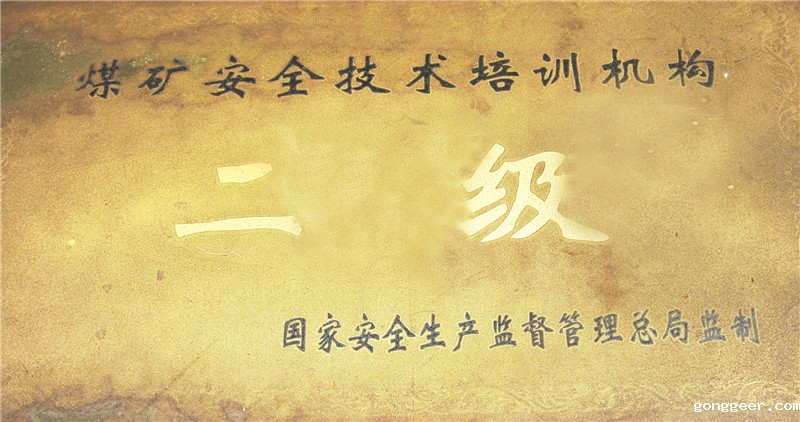 煤矿安全技术培训机构
二 级
国家安全生产监督管理总局监制
gonggeer.com